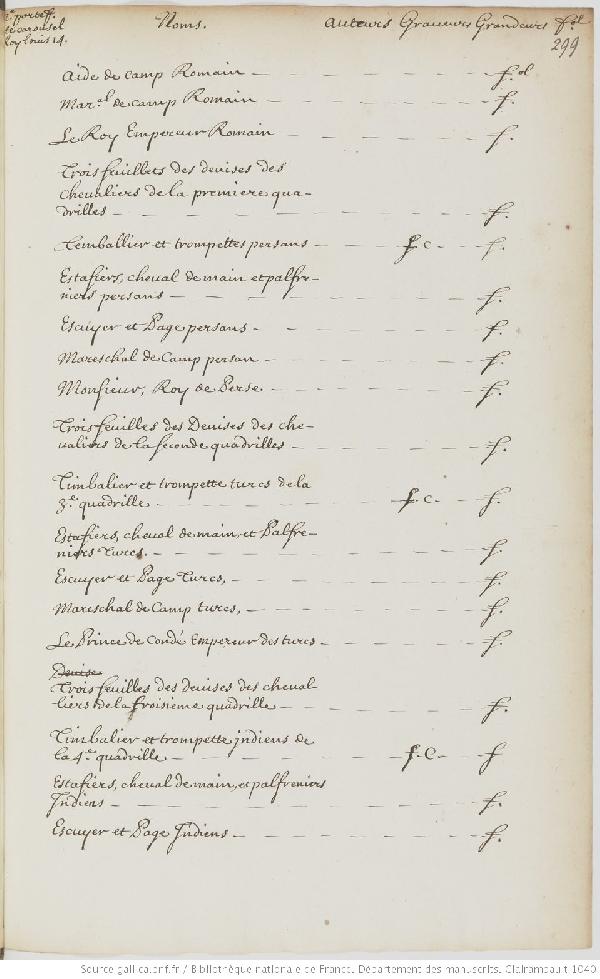 portef.
carousel
Noms. auteurs Graveurs Grandeurs f.ol
Louis 14.
299
Aide de camp Romain — f.ol
Mar.al de camp Romain — f.
Le Roy Empereur Romain — f.
Trois feuillets des devises des
chevaliers de la premiere qua-
drilles — f.
Timballier et trompettes persans — f. c. — f.
Estafiers, cheval de main et palfre-
niers persans — f.
Escuyer et Page persans — f.
Mareschal de Camp persan — f.
Monsieur, Roy de Perse — f.
Trois feuilles des Devises des che-
valiers de la seconde quadrilles — f.
Timbalier et trompette turcs de la
3.e quadrille — f. c. — f.
Estafiers, cheval de main, et Palfre-
niers Turcs. — f.
Escuyer et Page Turcs, — f.
Mareschal de Camp turcs, — f.
Le Prince de Condé Empereur des turcs — f.
Devise
Trois feuilles des devises des cheval-
liers de la troisieme quadrille — f.
Timbalier et trompette jndiens de
la 4.e quadrille — f. C — f
Estafiers, cheval de main, et palfreniers
Jndiens — f.
Escuyer et Page Jndiens — f.
Source gallica.bnf.fr / Bibliothèque nationale de France. Département des manuscrits. Clairambault 1040